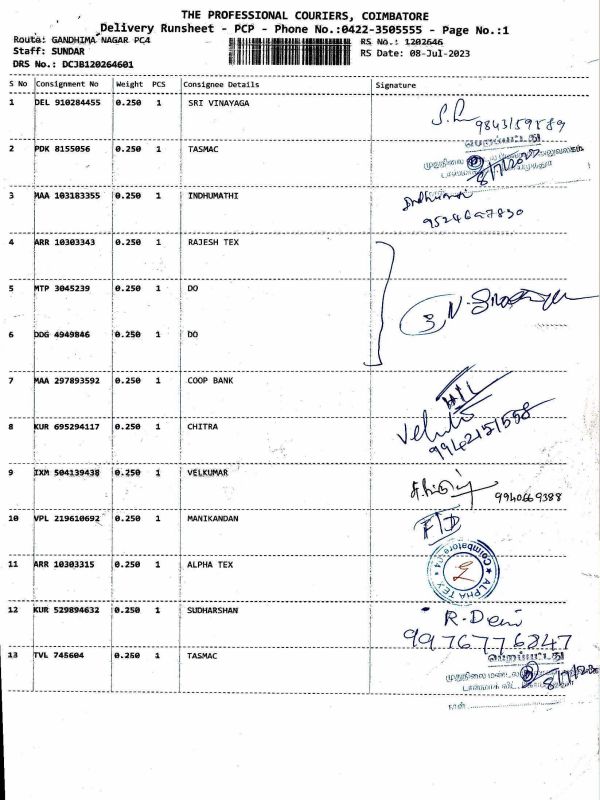 THE PROFESSIONAL COURIERS, COIMBATORE
Delivery Runsheet - PCP - Phone No.:0422-3505555 - Page No.:1
Route: GANDHIMA NAGAR PC4 RS No.: 1202646
Staff: SUNDAR RS Date: 08-Jul-2023
DRS No.: DCJB120264601
S No Consignment No Weight PCS Consignee Details Signature
1 DEL 910284455 0.250 1 SRI VINAYAGA
9843159589
2 PDK 8155056 0.250 1 TASMAC
பெறப்பட்டது
3 MAA 103183355 0.250 1 INDHUMATHI
4 ARR 10303343 0.250 1 RAJESH TEX
5 MTP 3045239 0.250 1 DO
3
6 DDG 4949846 0.250 1 DO
7 MAA 297893592 0.250 1 COOP BANK
8 KUR 695294117 0.250 1 CHITRA
9942151558
9 IXM 504139438 0.250 1 VELKUMAR
9940669388
10 VPL 219610692 0.250 1 MANIKANDAN
11 ARR 10303315 0.250 1 ALPHA TEX
ALPHA TEX Coimbatore-04
12 KUR 529894632 0.250 1 SUDHARSHAN
R. Devi
99767 76847
13 TVL 745604 0.250 1 TASMAC
பெறப்பட்டது
நாள்